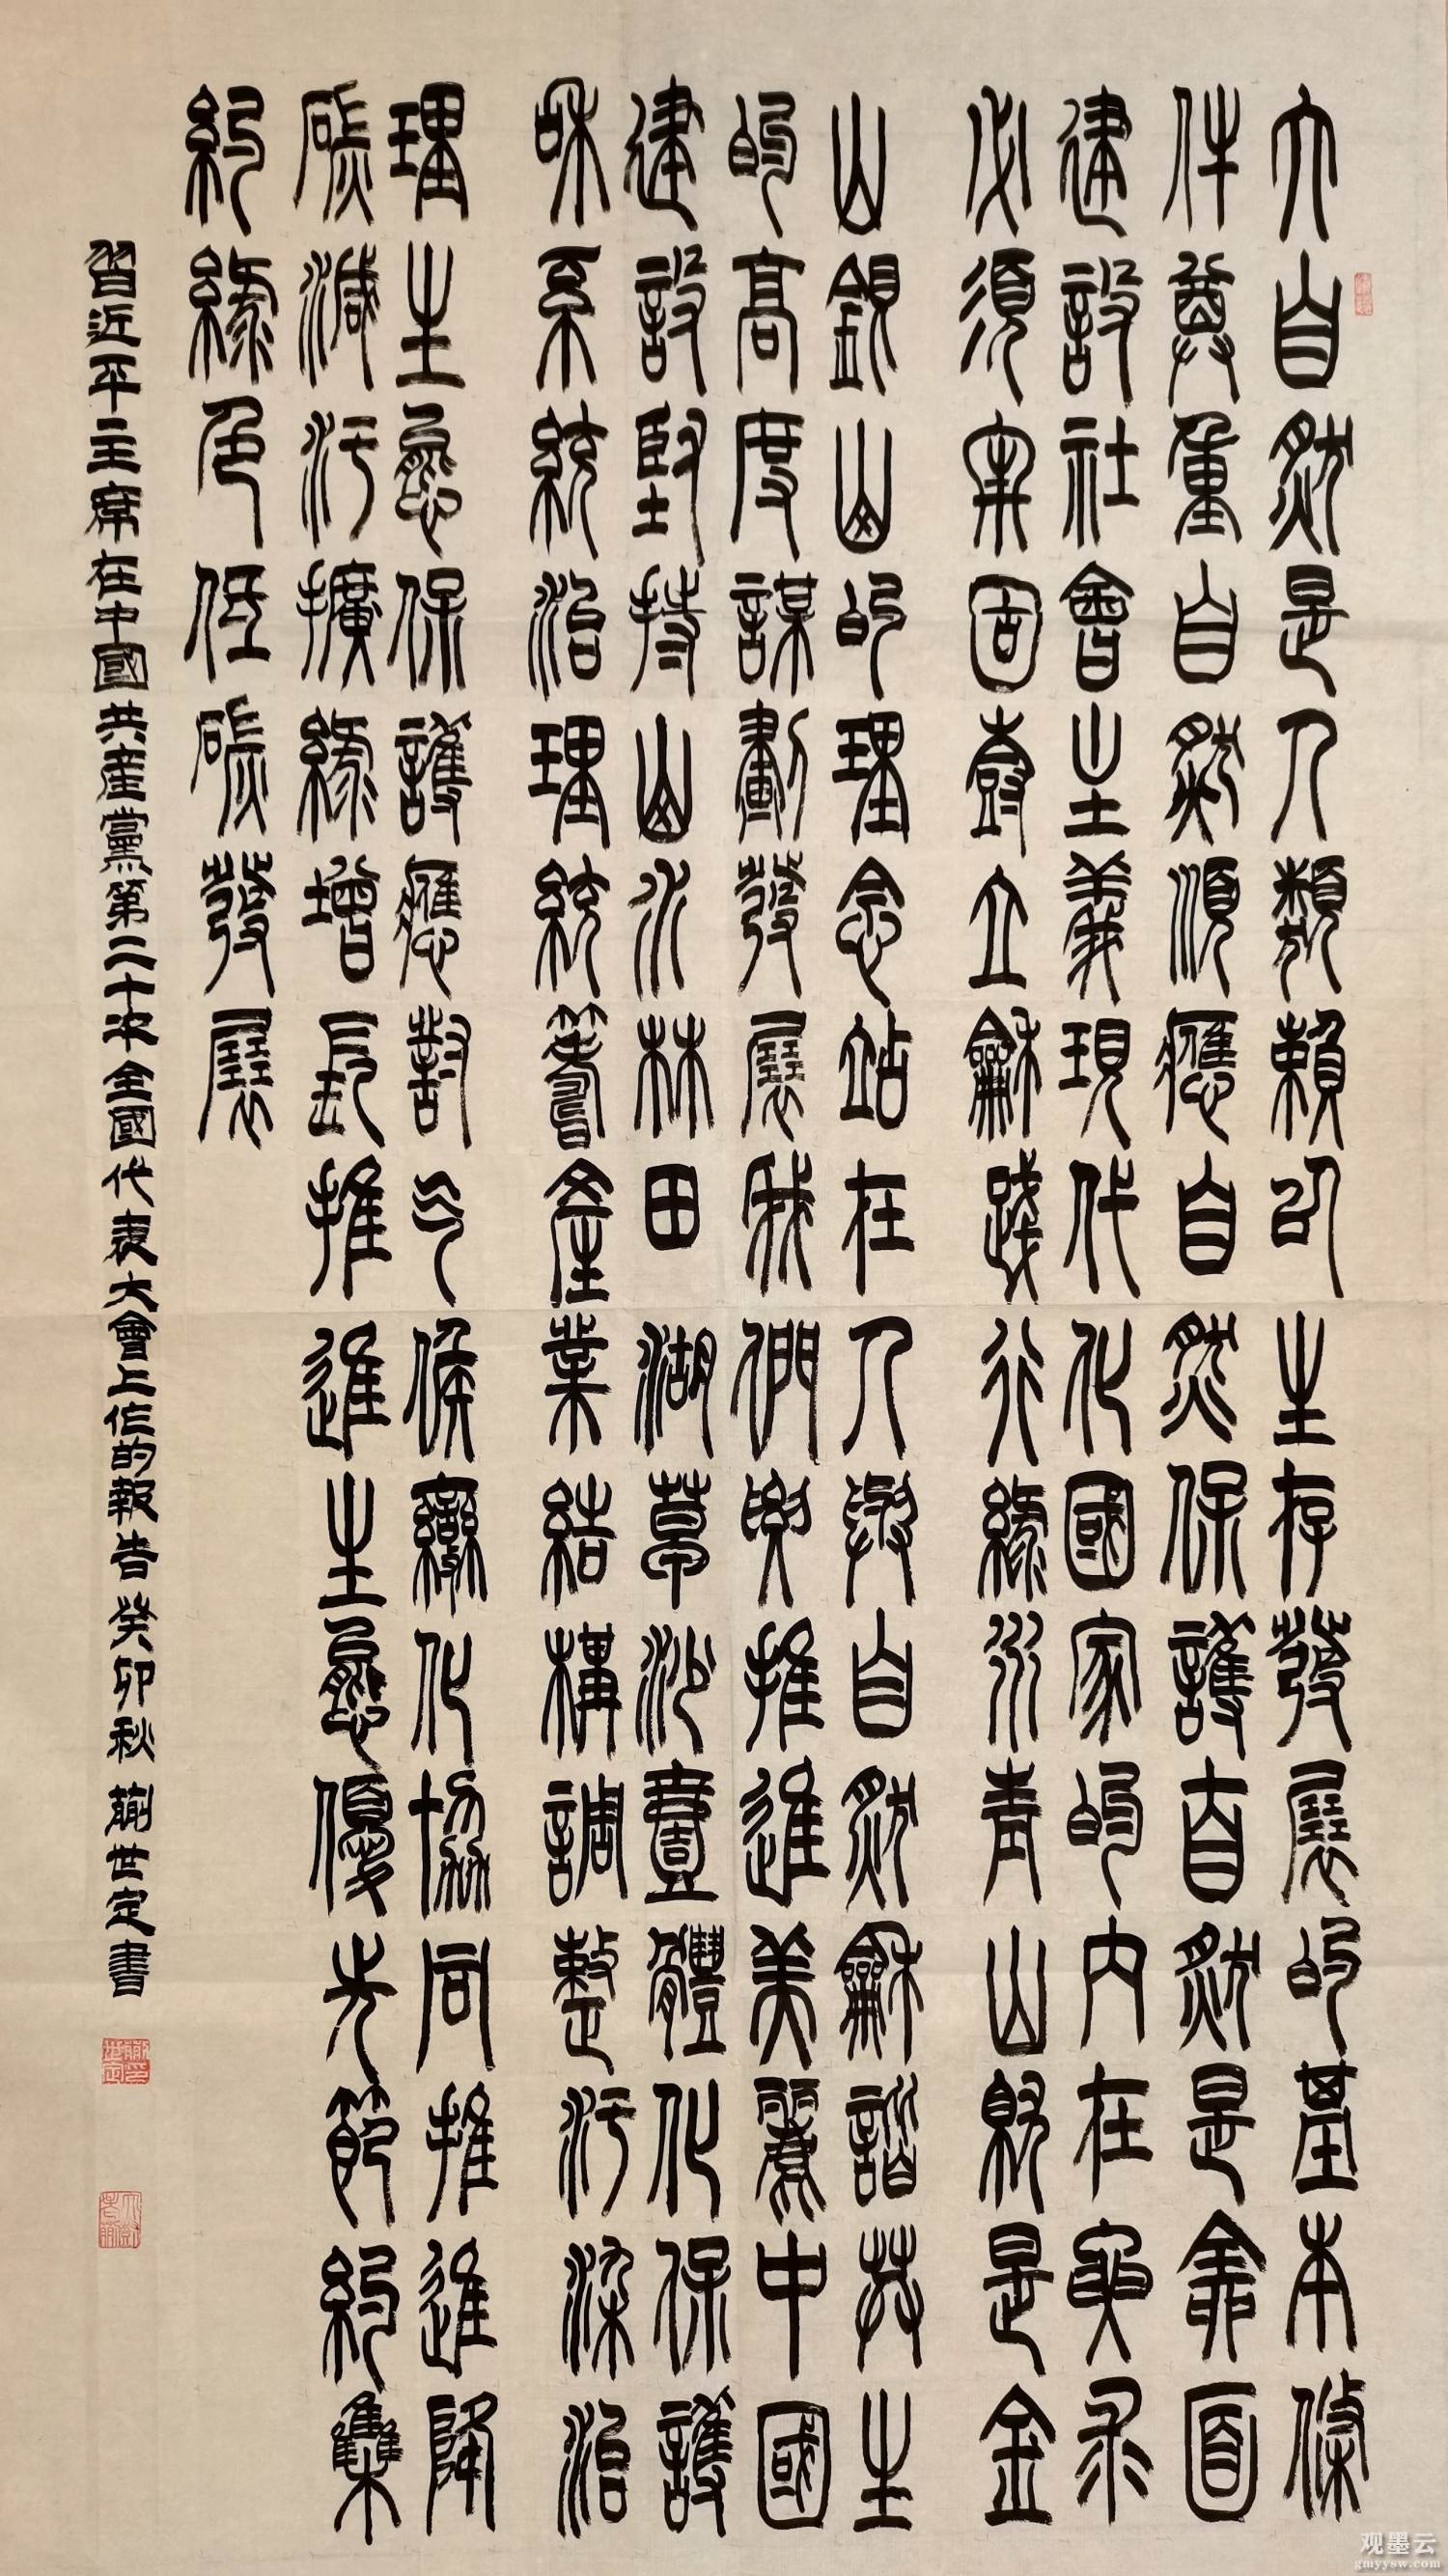 大自然是人類賴以生存發展的基本條
件尊重自然順應自然保護自然是全面
建設社會主義現代化國家的内在要求
必須牢固樹立和踐行緑水青山就是金
山銀山的理念站在人與自然和諧共生
的高度謀劃發展我們要推進美麗中國
建設堅持山水林田湖草沙壹體化保護
和系統治理統籌產業結構調整污染治
理生態保護應對氣候變化協同推進降
碳減污擴緑增長推進生態優先節約集
約緑色低碳發展
習近平主席在中國共産黨第二十次全國代表大會上作的報告癸卯秋蒯世定書
观墨云
gmyysw.com